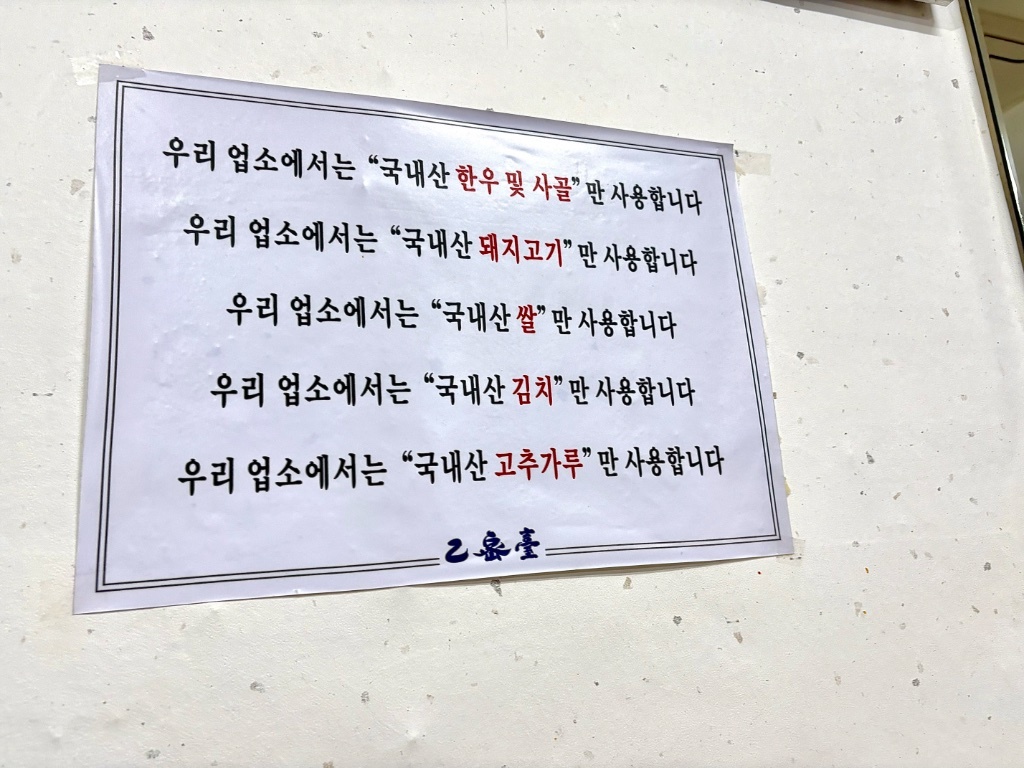 우리 업소에서는 “국내산 한우 및 사골”만 사용합니다
우리 업소에서는 “국내산 돼지고기”만 사용합니다
우리 업소에서는 “국내산 쌀”만 사용합니다
우리 업소에서는 “국내산 김치”만 사용합니다
우리 업소에서는 “국내산 고추가루”만 사용합니다
乙泉臺